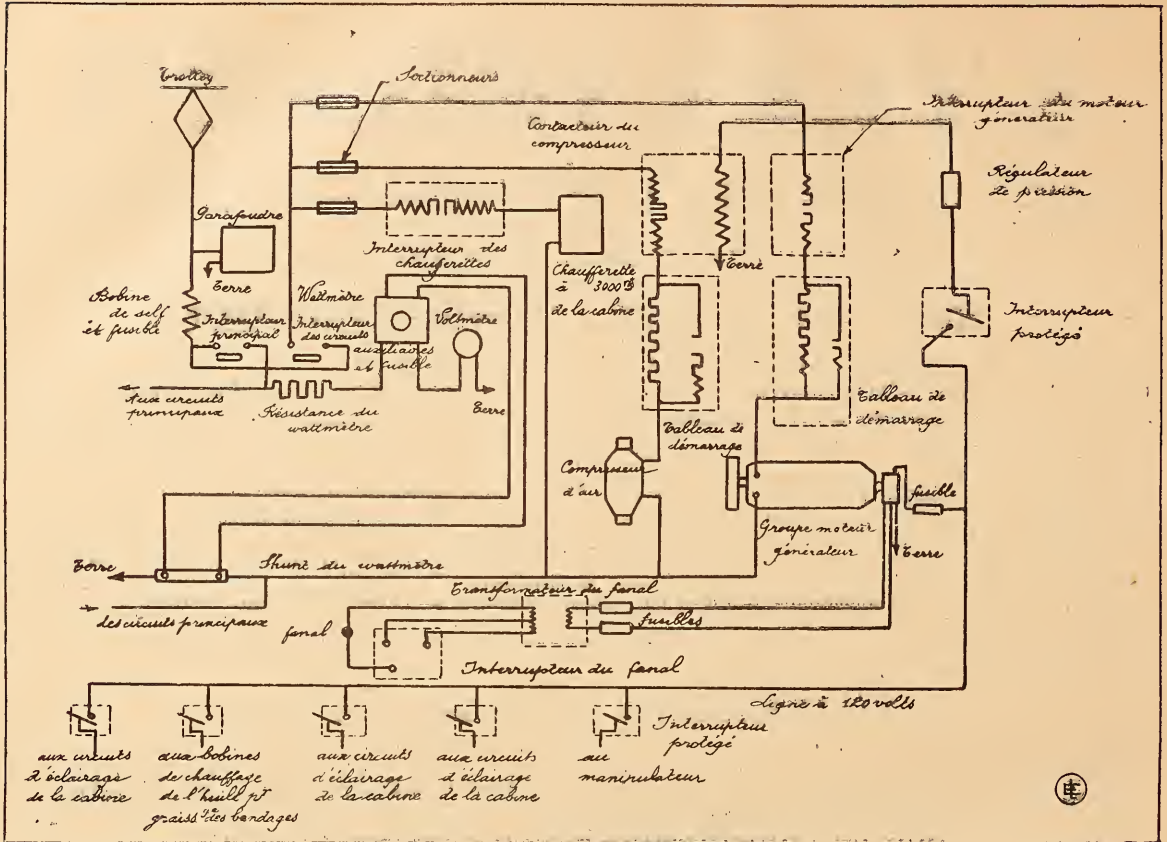 Trolley
Sectionneurs
Contacteur du
compresseur
Interrupteur du moteur
générateur
Régulateur
de pression
Parafoudre
Terre
Interrupteur des
chaufferettes
Chaufferette
à 3000 w
de la cabine
Terre
Bobine
de self
et fusible
Interrupteur
principal
Wattmètre
Interrupteur
des circuits
auxiliaires
et fusible
Voltmètre
Interrupteur
protégé
Aux circuits
principaux
Résistance du
wattmètre
Terre
Tableau de
démarrage
Tableau de
démarrage
Compresseur
d'air
Groupe moteur
générateur
fusible
Terre
Terre
Shunt du wattmètre
des circuits principaux
Transformateur du fanal
fusibles
fanal
Interrupteur du fanal
Ligne à 120 volts
Interrupteur
protégé
aux circuits
d'éclairage
de la cabine
aux bobines
de chauffage
de l'huile pr
graissge des bandages
aux circuits
d'éclairage
de la cabine
aux circuits
d'éclairage
de la cabine
au
manipulateur